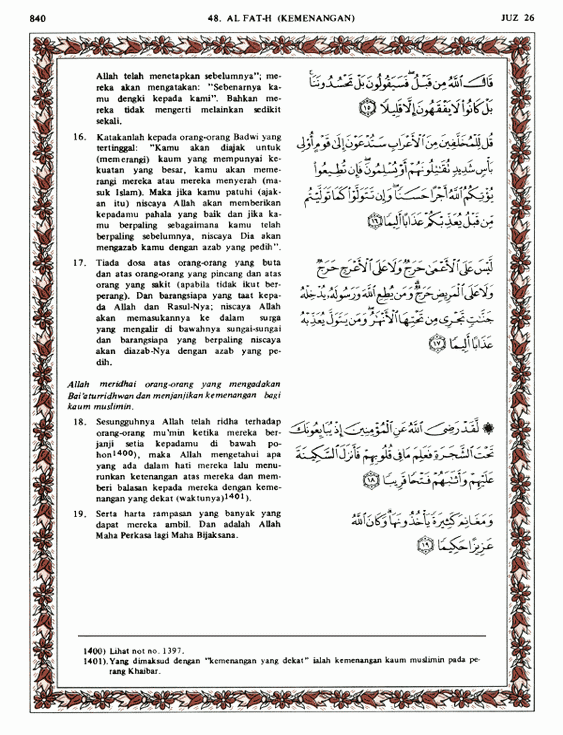 840
48. AL FAT-H (KEMENANGAN)
JUZ 26
Allah telah menetapkan sebelumnya"; me-
reka akan mengatakan: "Sebenarnya ka-
mu dengki kepada kami". Bahkan me-
reka tidak mengerti melainkan sedikit
sekali.
قَالَ اللَّهُ مِن قَبْلُ فَسَيَقُولُونَ بَلْ تَحْسُدُونَنَا
بَلْ كَانُوا لَا يَفْقَهُونَ إِلَّا قَلِيلًا ١٥
16. Katakanlah kepada orang-orang Badwi yang
tertinggal: "Kamu akan diajak untuk
(memerangi) kaum yang mempunyai ke-
kuatan yang besar, kamu akan meme-
rangi mereka atau mereka menyerah (ma-
suk Islam). Maka jika kamu patuhi (ajak-
an itu) niscaya Allah akan memberikan
kepadamu pahala yang baik dan jika ka-
mu berpaling sebagaimana kamu telah
berpaling sebelumnya, niscaya Dia akan
mengazab kamu dengan azab yang pedih".
قُل لِّلْمُخَلَّفِينَ مِنَ الْأَعْرَابِ سَتُدْعَوْنَ إِلَىٰ قَوْمٍ أُولِي
بَأْسٍ شَدِيدٍ تُقَاتِلُونَهُمْ أَوْ يُسْلِمُونَ فَإِن تُطِيعُوا
يُؤْتِكُمُ اللَّهُ أَجْرًا حَسَنًا وَإِن تَتَوَلَّوْا كَمَا تَوَلَّيْتُم
مِّن قَبْلُ يُعَذِّبْكُمْ عَذَابًا أَلِيمًا ١٦
17. Tiada dosa atas orang-orang yang buta
dan atas orang-orang yang pincang dan atas
orang yang sakit (apabila tidak ikut ber-
perang). Dan barangsiapa yang taat kepa-
da Allah dan Rasul-Nya; niscaya Allah
akan memasukannya ke dalam surga
yang mengalir di bawahnya sungai-sungai
dan barangsiapa yang berpaling niscaya
akan diazab-Nya dengan azab yang pe-
dih.
لَّيْسَ عَلَى الْأَعْمَىٰ حَرَجٌ وَلَا عَلَى الْأَعْرَجِ حَرَجٌ
وَلَا عَلَى الْمَرِيضِ حَرَجٌ وَمَن يُطِعِ اللَّهَ وَرَسُولَهُ يُدْخِلْهُ
جَنَّاتٍ تَجْرِي مِن تَحْتِهَا الْأَنْهَارُ وَمَن يَتَوَلَّ يُعَذِّبْهُ
عَذَابًا أَلِيمًا ١٧
Allah meridhai orang-orang yang mengadakan
Bai'aturridhwan dan menjanjikan kemenangan bagi
kaum muslimin.
18. Sesungguhnya Allah telah ridha terhadap
orang-orang mu'min ketika mereka ber-
janji setia kepadamu di bawah po-
hon1400), maka Allah mengetahui apa
yang ada dalam hati mereka lalu menu-
runkan ketenangan atas mereka dan mem-
beri balasan kepada mereka dengan keme-
nangan yang dekat (waktunya)1401).
۞ لَّقَدْ رَضِيَ اللَّهُ عَنِ الْمُؤْمِنِينَ إِذْ يُبَايِعُونَكَ
تَحْتَ الشَّجَرَةِ فَعَلِمَ مَا فِي قُلُوبِهِمْ فَأَنزَلَ السَّكِينَةَ
عَلَيْهِمْ وَأَثَابَهُمْ فَتْحًا قَرِيبًا ١٨
19. Serta harta rampasan yang banyak yang
dapat mereka ambil. Dan adalah Allah
Maha Perkasa lagi Maha Bijaksana.
وَمَغَانِمَ كَثِيرَةً يَأْخُذُونَهَا وَكَانَ اللَّهُ
عَزِيزًا حَكِيمًا ١٩
1400) Lihat not no. 1397.
1401). Yang dimaksud dengan "kemenangan yang dekat" ialah kemenangan kaum muslimin pada pe-
rang Khaibar.